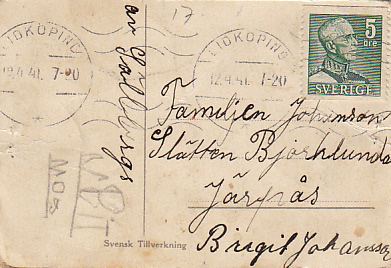 17
LIDKÖPING
12.4.41. 7-20
LIDKÖPING
12.4.41. 7-20
5
öre
SVERIGE
av
Sallbergs
Familjen Johansson
Slätten Björklunda
Järpås
Birgit Johansson
Svensk Tillverkning